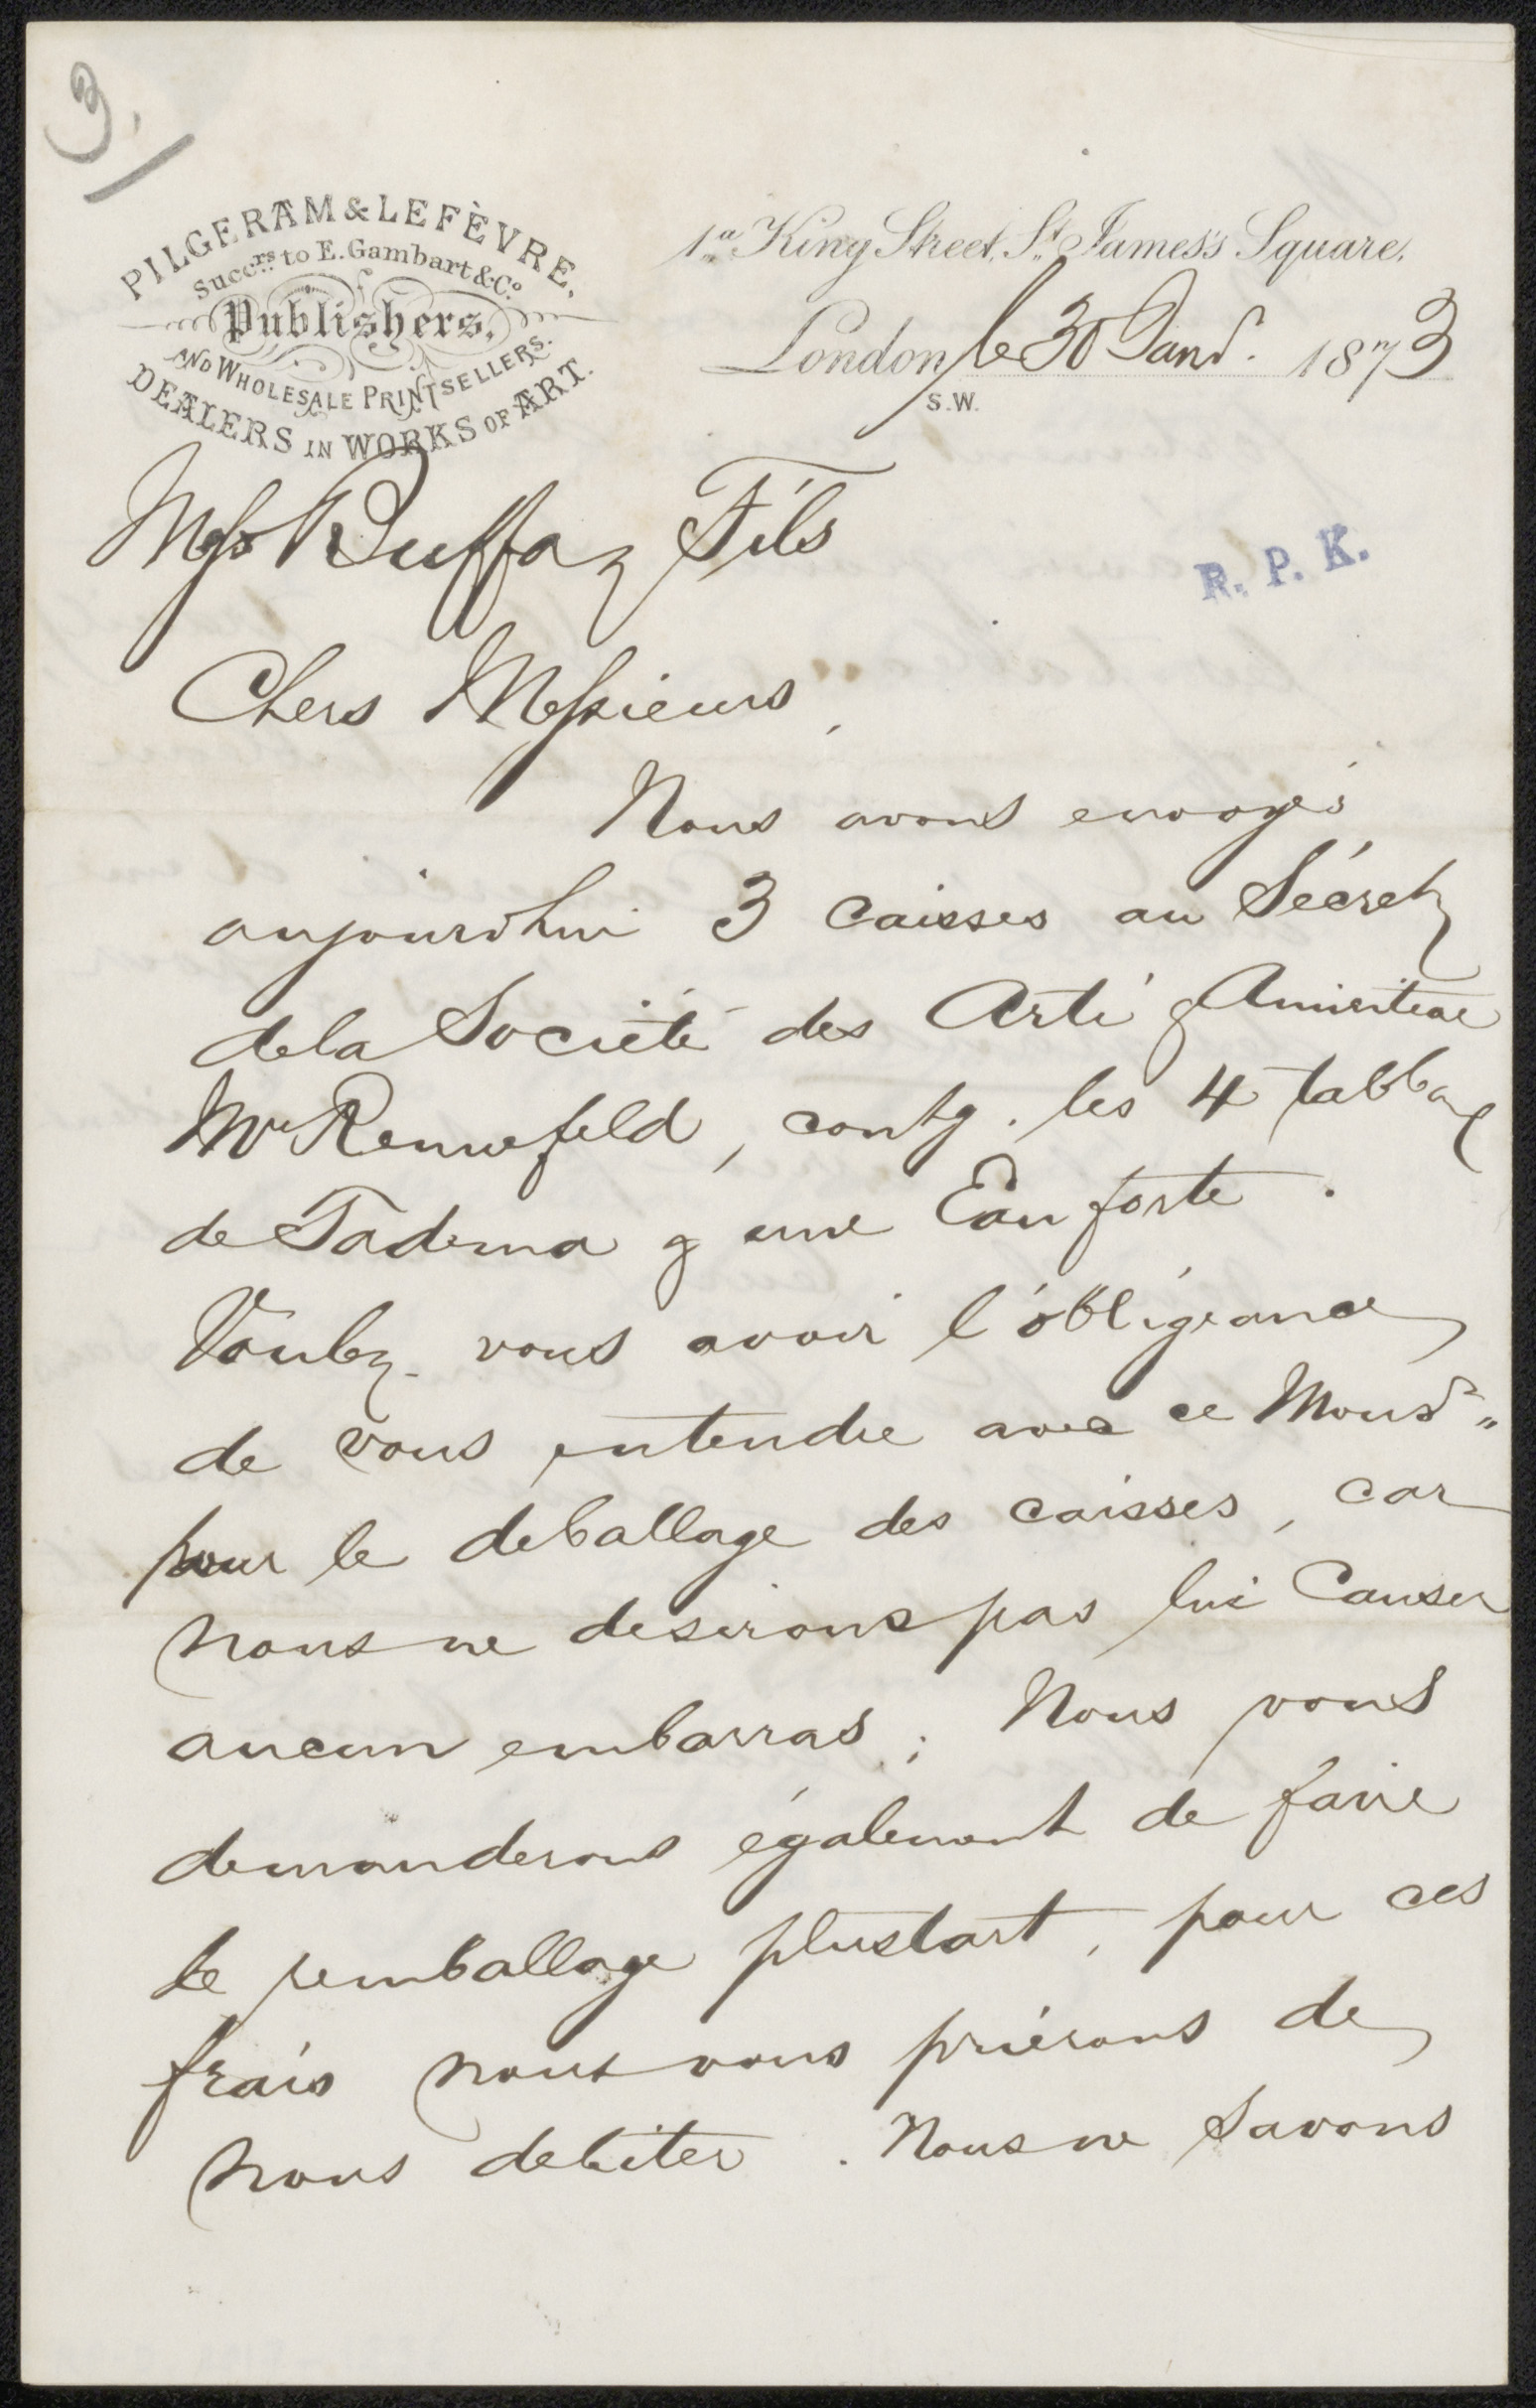 3.
PILGERAM & LEFÈVRE,
Succrs. to E. Gambart & Co.
Publishers,
AND WHOLESALE PRINTSELLERS.
DEALERS IN WORKS OF ART.
1a. King Street, St. James's Square,
London, le 30 Janv. 1873
S.W.
Mess Buffa & Fils
R. P. K.
Chers Messieurs,
Nous avons envoyés
aujourdhui 3 caisses au Sécret
de la Société des Arti & Amicitiae
Mr Rennefeld, contg. les 4 tabbaux
de Tadema & une Eau forte.
Voulez-vous avoir l'obligeance
de vous entendre avec ce Monsr
pour le deballage des caisses, car
nous ne desirons pas lui Causer
aucun embarras; Nous vous
demanderons également de faire
le remballage plustart, pour ces
frais nous vous prierons de
nous debiter. Nous ne savons